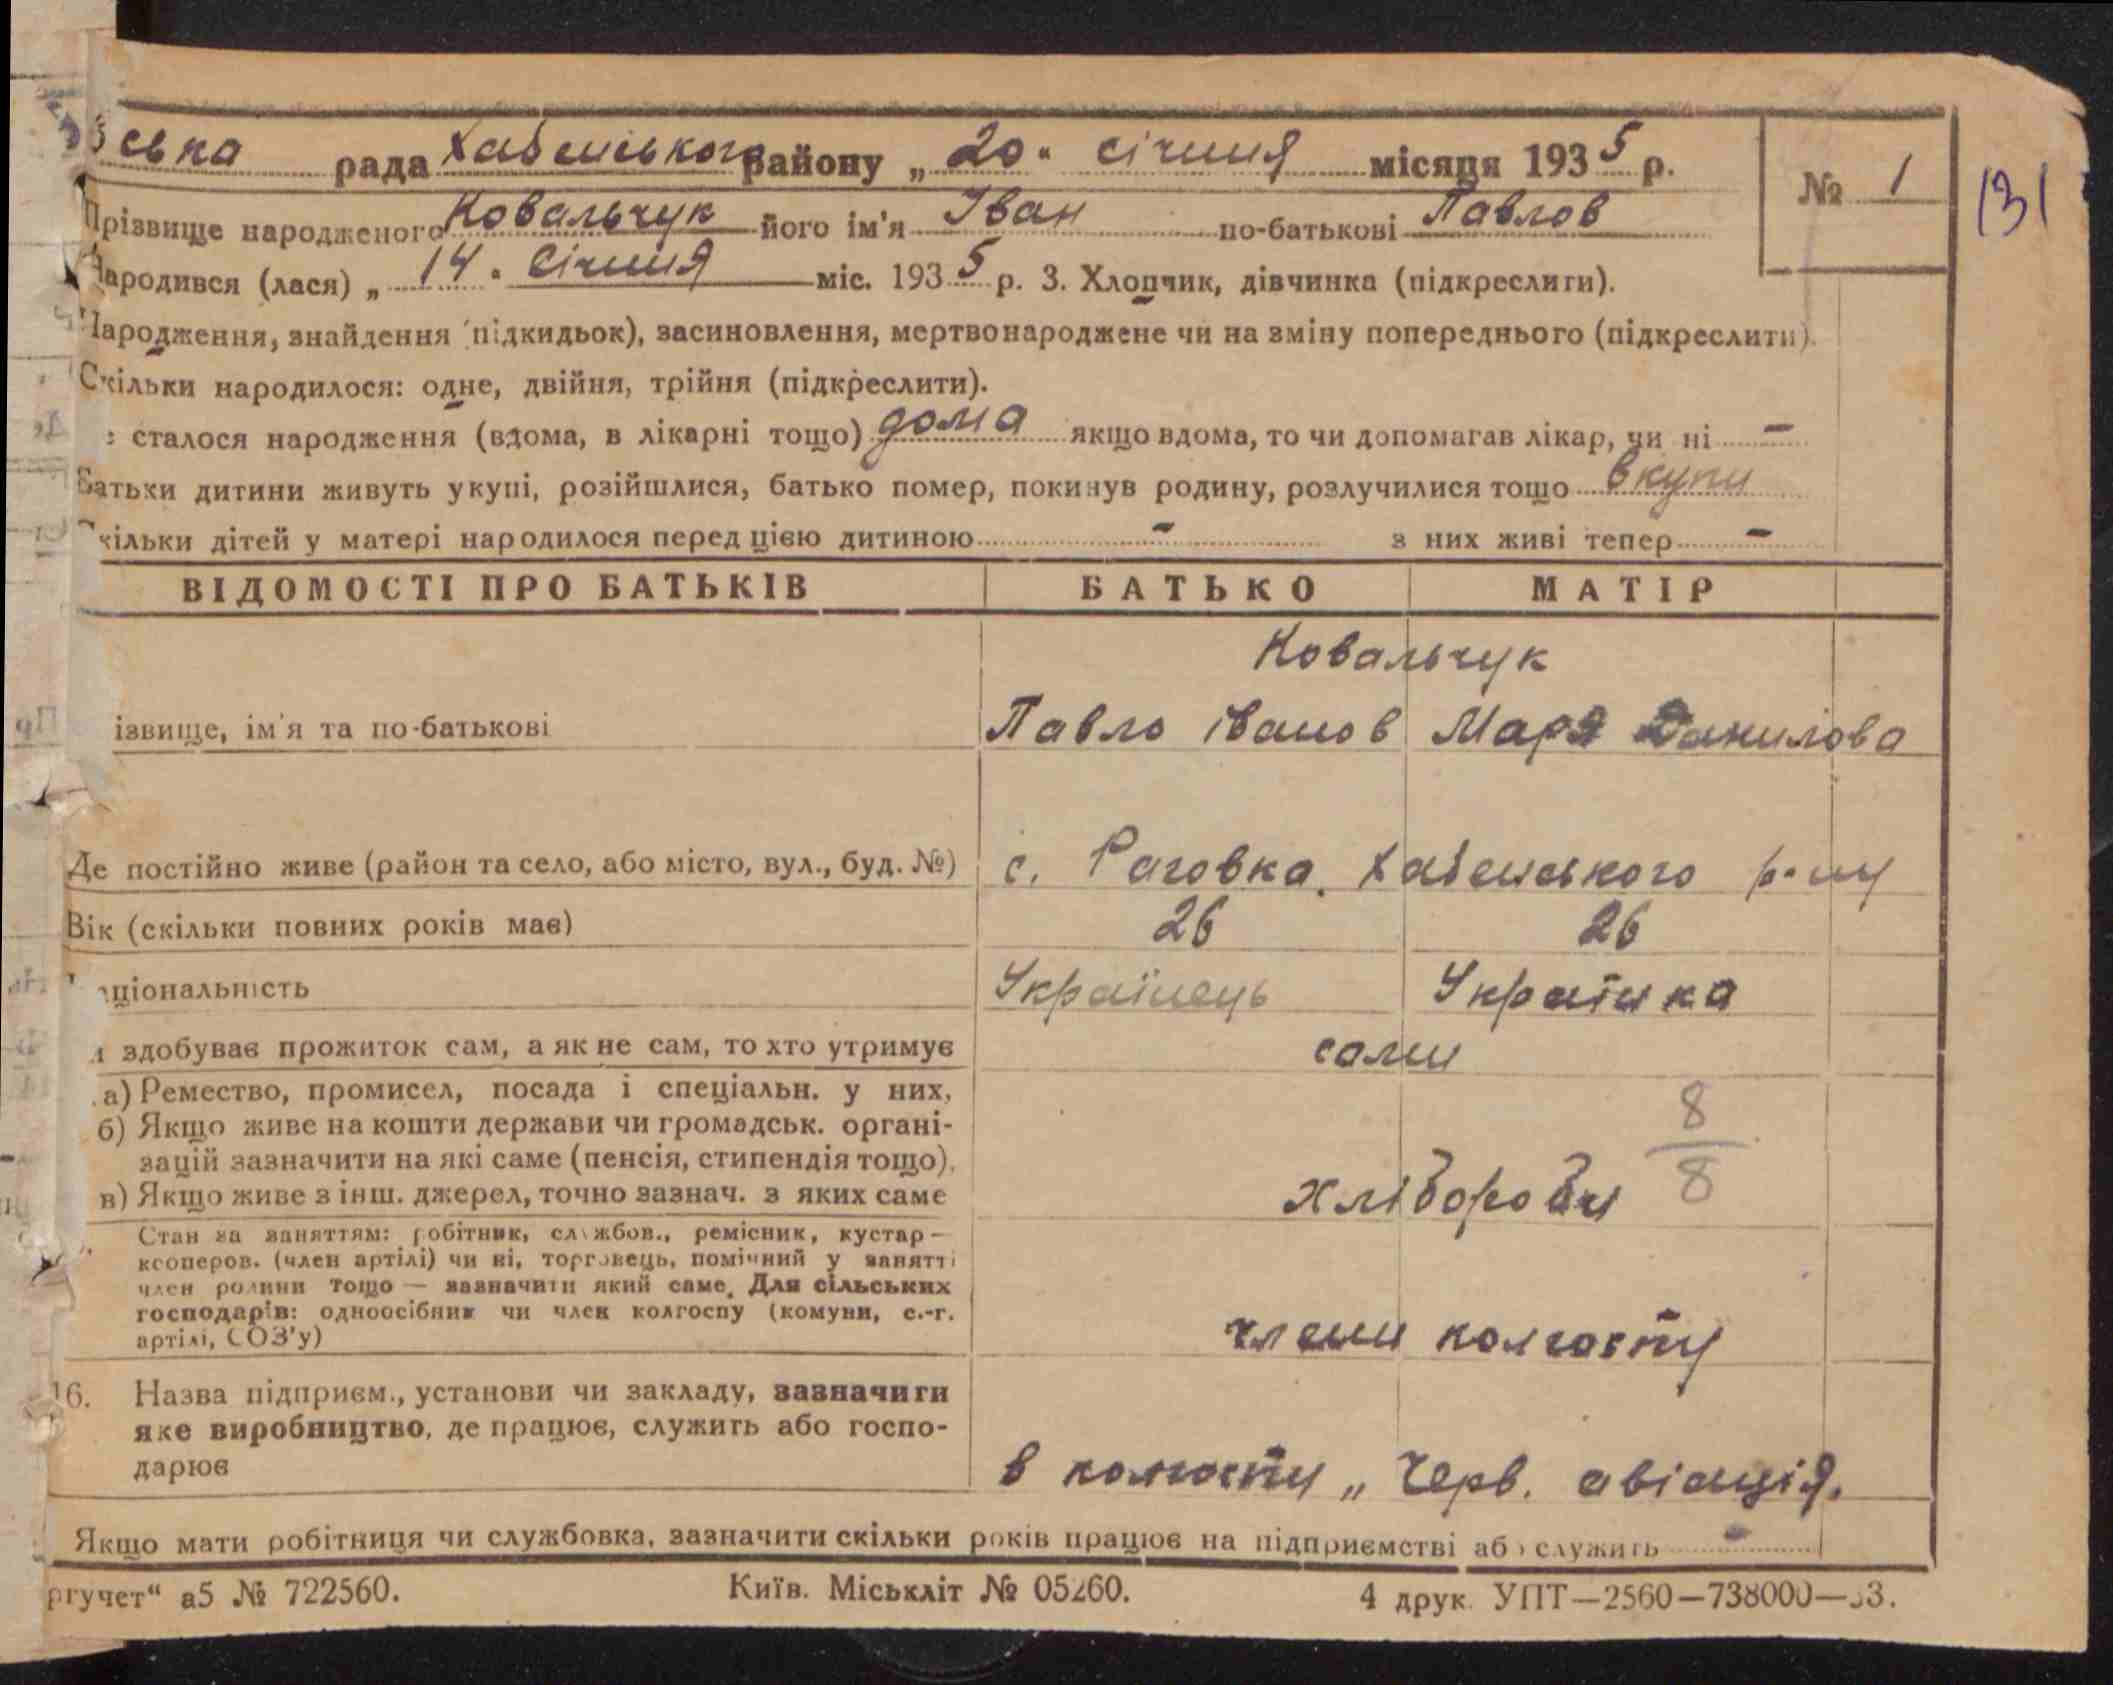 ська рада Хабенського району „ 20 " січння місяця 1935 р.
№ 1
131
Прізвище народженого Ковальчук його ім'я Іван по-батькові Павлов
Народився (лася) „ 14 " Січння міс. 1935 р. 3. Хлопчик, дівчинка (підкреслити).
Народження, знайдення (підкидьок), засиновлення, мертвонароджене чи на зміну попереднього (підкреслити).
Скільки народилося: одне, двійня, трійня (підкреслити).
сталося народження (вдома, в лікарні тощо) дома якщо вдома, то чи допомагав лікар, чи ні –
Батьки дитини живуть укупі, розійшлися, батько помер, покинув родину, розлучилися тощо вкупи
Скільки дітей у матері народилося перед цією дитиною – з них живі тепер –
ВІДОМОСТІ ПРО БАТЬКІВ БАТЬКО МАТІР
Ковальчук
ізвище, ім'я та по-батькові Павло іванов Маря Данилова
Де постійно живе (район та село, або місто, вул., буд. №) с. Раговка. Хабенського р-ну
Вік (скільки повних років має) 26 26
аціональність Українець Українка
здобуває прожиток сам, а як не сам, то хто утримує сами
а) Ремество, промисел, посада і спеціальн. у них,
б) Якщо живе на кошти держави чи громадськ. органі-
зацій зазначити на які саме (пенсія, стипендія тощо),
в) Якщо живе з інш. джерел, точно зазнач. з яких саме
хлібороби
8
8
Стан за заняттям: робітник, службов., ремісник, кустар—
кооперов. (член артілі) чи ні, торговець, помічний у занятті
член родини тощо — зазначити який саме. Для сільських
господарів: одноосібник чи член колгоспу (комуни, с.-г.
артілі, СОЗ'у)
члени колгоспу
16. Назва підприєм., установи чи закладу, зазначити
яке виробництво, де працює, служить або госпо-
дарює
в колгоспу „ Черв. авіація.
Якщо мати робітниця чи службовка, зазначити скільки років працює на підприємстві або служить –
ргучет“ а5 № 722560. Київ. Міськліт № 05260. 4 друк. УПТ—2560—738000—33.